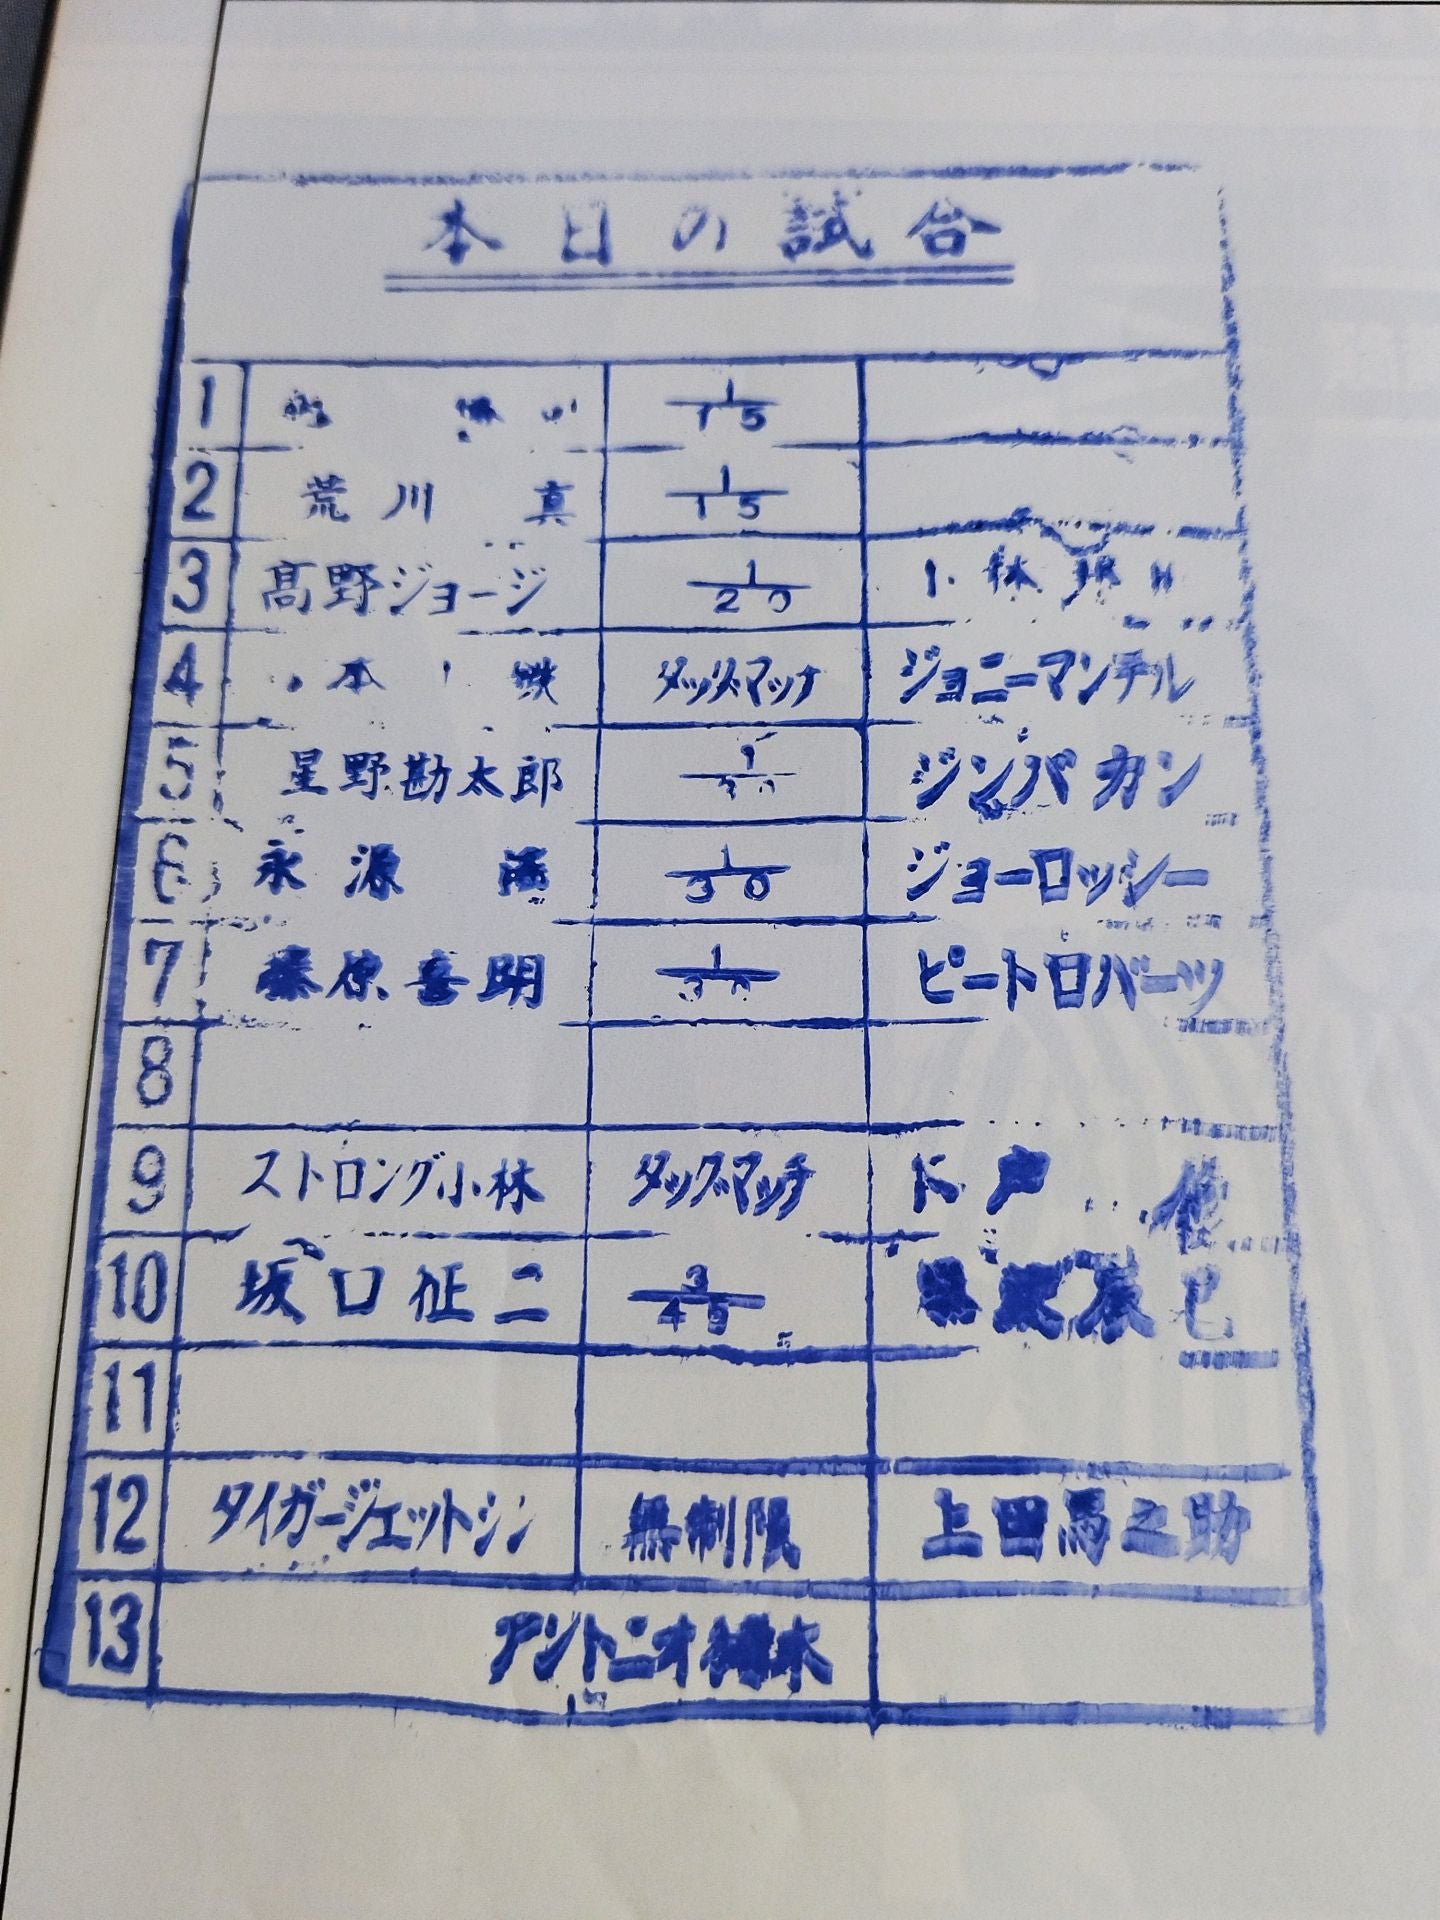 本日の試合
1 1/15
2 荒川 真 1/15
3 髙野ジョージ 1/20 林
4 本 鉄 タッグマッチ ジョニーマンテル
5 星野勘太郎 ジンバカン
6 永源 1/30 ジョーロッシー
7 藤原喜明 1/30 ピートロバーツ
8
9 ストロング小林 タッグマッチ 戸 修
10 坂口征二 3/45 辰巳
11
12 タイガージェットシン 無制限 上田馬之助
13 アントニオ猪木